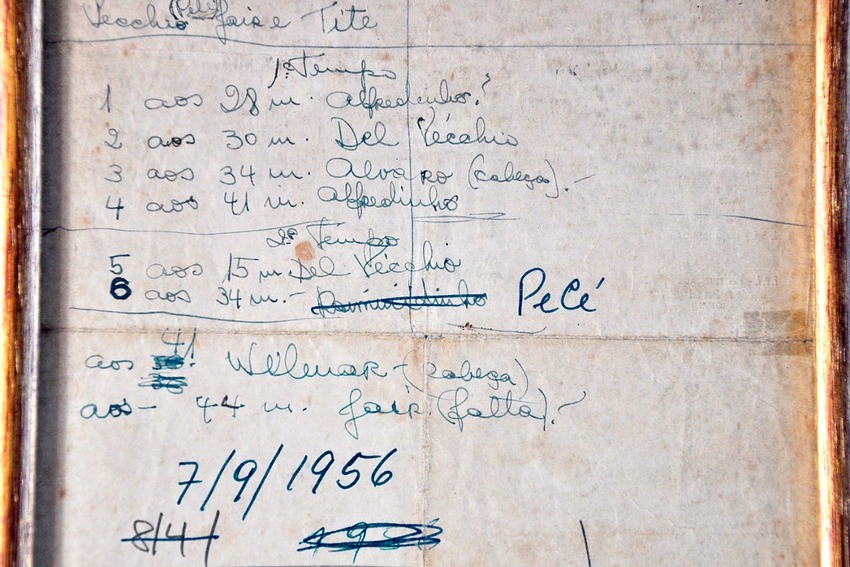 Vecchio (Pelé) Jair e Tite
1º Tempo
1 aos 28 m. Alfredinho.
2 aos 30 m. Del Vécchio
3 aos 34 m. Alvaro (cabeça).-
4 aos 41 m. Alfredinho
2º Tempo
5 aos 15 m. Del Vécchio
6 aos 34 m.- Raimundinho PeLé
aos 41! Wilmar - (cabeça)
aos - 44 m. Jair. (falta).-
7/9/1956
8/4/